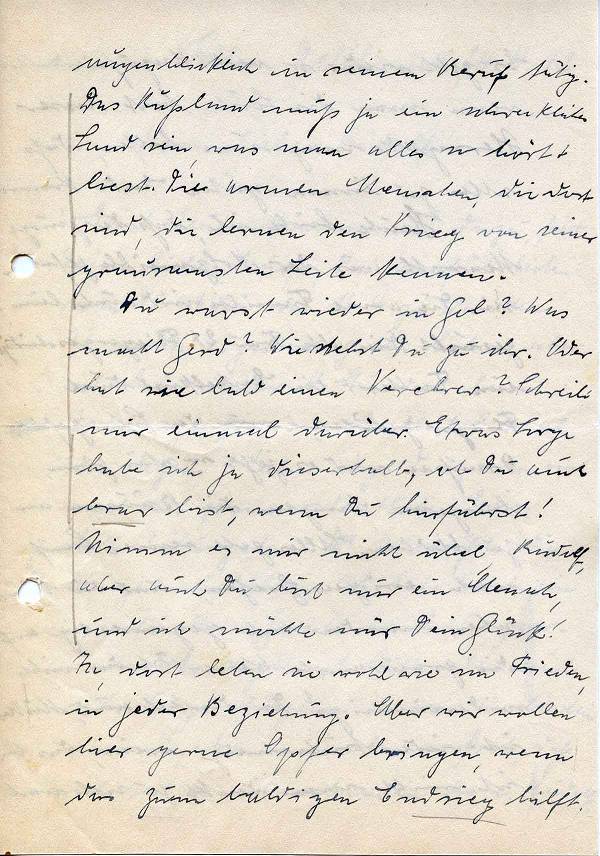 augenblicklich in seinem Beruf tätig.
Das Rußland muß ja ein schreckliches
Land sein, was man alles so hört +
liest. Die armen Menschen, die dort
sind, die lernen den Krieg von seiner
grausamsten Seite kennen.
Du warst wieder in Gol? Was
macht Gerd? Wie stehst Du zu ihr. Oder
hat sie bald einen Verehrer? Schreib
mir einmal darüber. Etwas Sorge
habe ich ja dieserhalb, ob Du auch
brav bist, wenn Du hinfährst!
Nimm es mir nicht übel, Rudolf,
aber auch Du bist nur ein Mensch,
und ich möchte nur Dein Glück!
Ja, dort leben sie wohl wie im Frieden,
in jeder Beziehung. Aber wir wollen
hier gerne Opfer bringen, wenn
das zum baldigen Endsieg hilft.